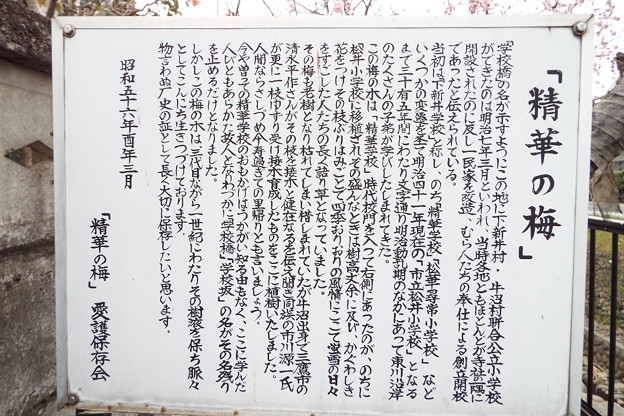 「精華の梅」
「学校橋」の名が示すようにこの地に下新井村・牛沼村聯合公立小学校
ができたのは明治七年三月といわれ、当時各地ともほとんどが寺社の隅に
開設されたのに反し一民家を改造、むら人たちの奉仕による創立開校
であったと伝えられている。
当初は「下新井学校」と称し、のち「精華学校」「松華尋常小学校」など
いくつかの変遷を至て明治四十一年現在の「市立松井小学校」となる
まで三十有五年間にわたり文字通り明治動乱期のなかにあって東川沿岸
のたくさんの子弟が学びしたしまれてきた。
この梅の木は「精華学校」時代校門を入って右側にあったのが、のちに
松井小学校に移植されその盛んなときは樹高丈余に及び、かぐわしき
花をつけその枝ぶりはみごとで四季おりおりの風情にここで学習の日々
をすごした人たちの長く語り草となっていました。
その梅も老樹となり枯れてしまい惜しまれていたが牛沼出身で三鷹市の
清水平作さんがその枝を接木し健在なるを伝え聞き同族の市川源一氏
が更に一枝ゆずり受け接木育成したものをここに植樹いたしました。
人間ならさしづめ八十寿過ぎての里帰りとも言いましょう。
今や曽ての精華学校のおもかげはうかがい知る由もなく、ここに学んだ
人びともあらかた故人となりわづかに「学校橋」「学校坂」の名がその名残り
を止めるだけとなりました。
しかしこの梅の木は三代目ながら一世紀にわたりその樹液を保ち脈々
としてこんにち生きつづけております。
物言わぬ一史の証として長く大切に保存したいと思います。
昭和五十六年酉年三月
「精華の梅」愛護保存会